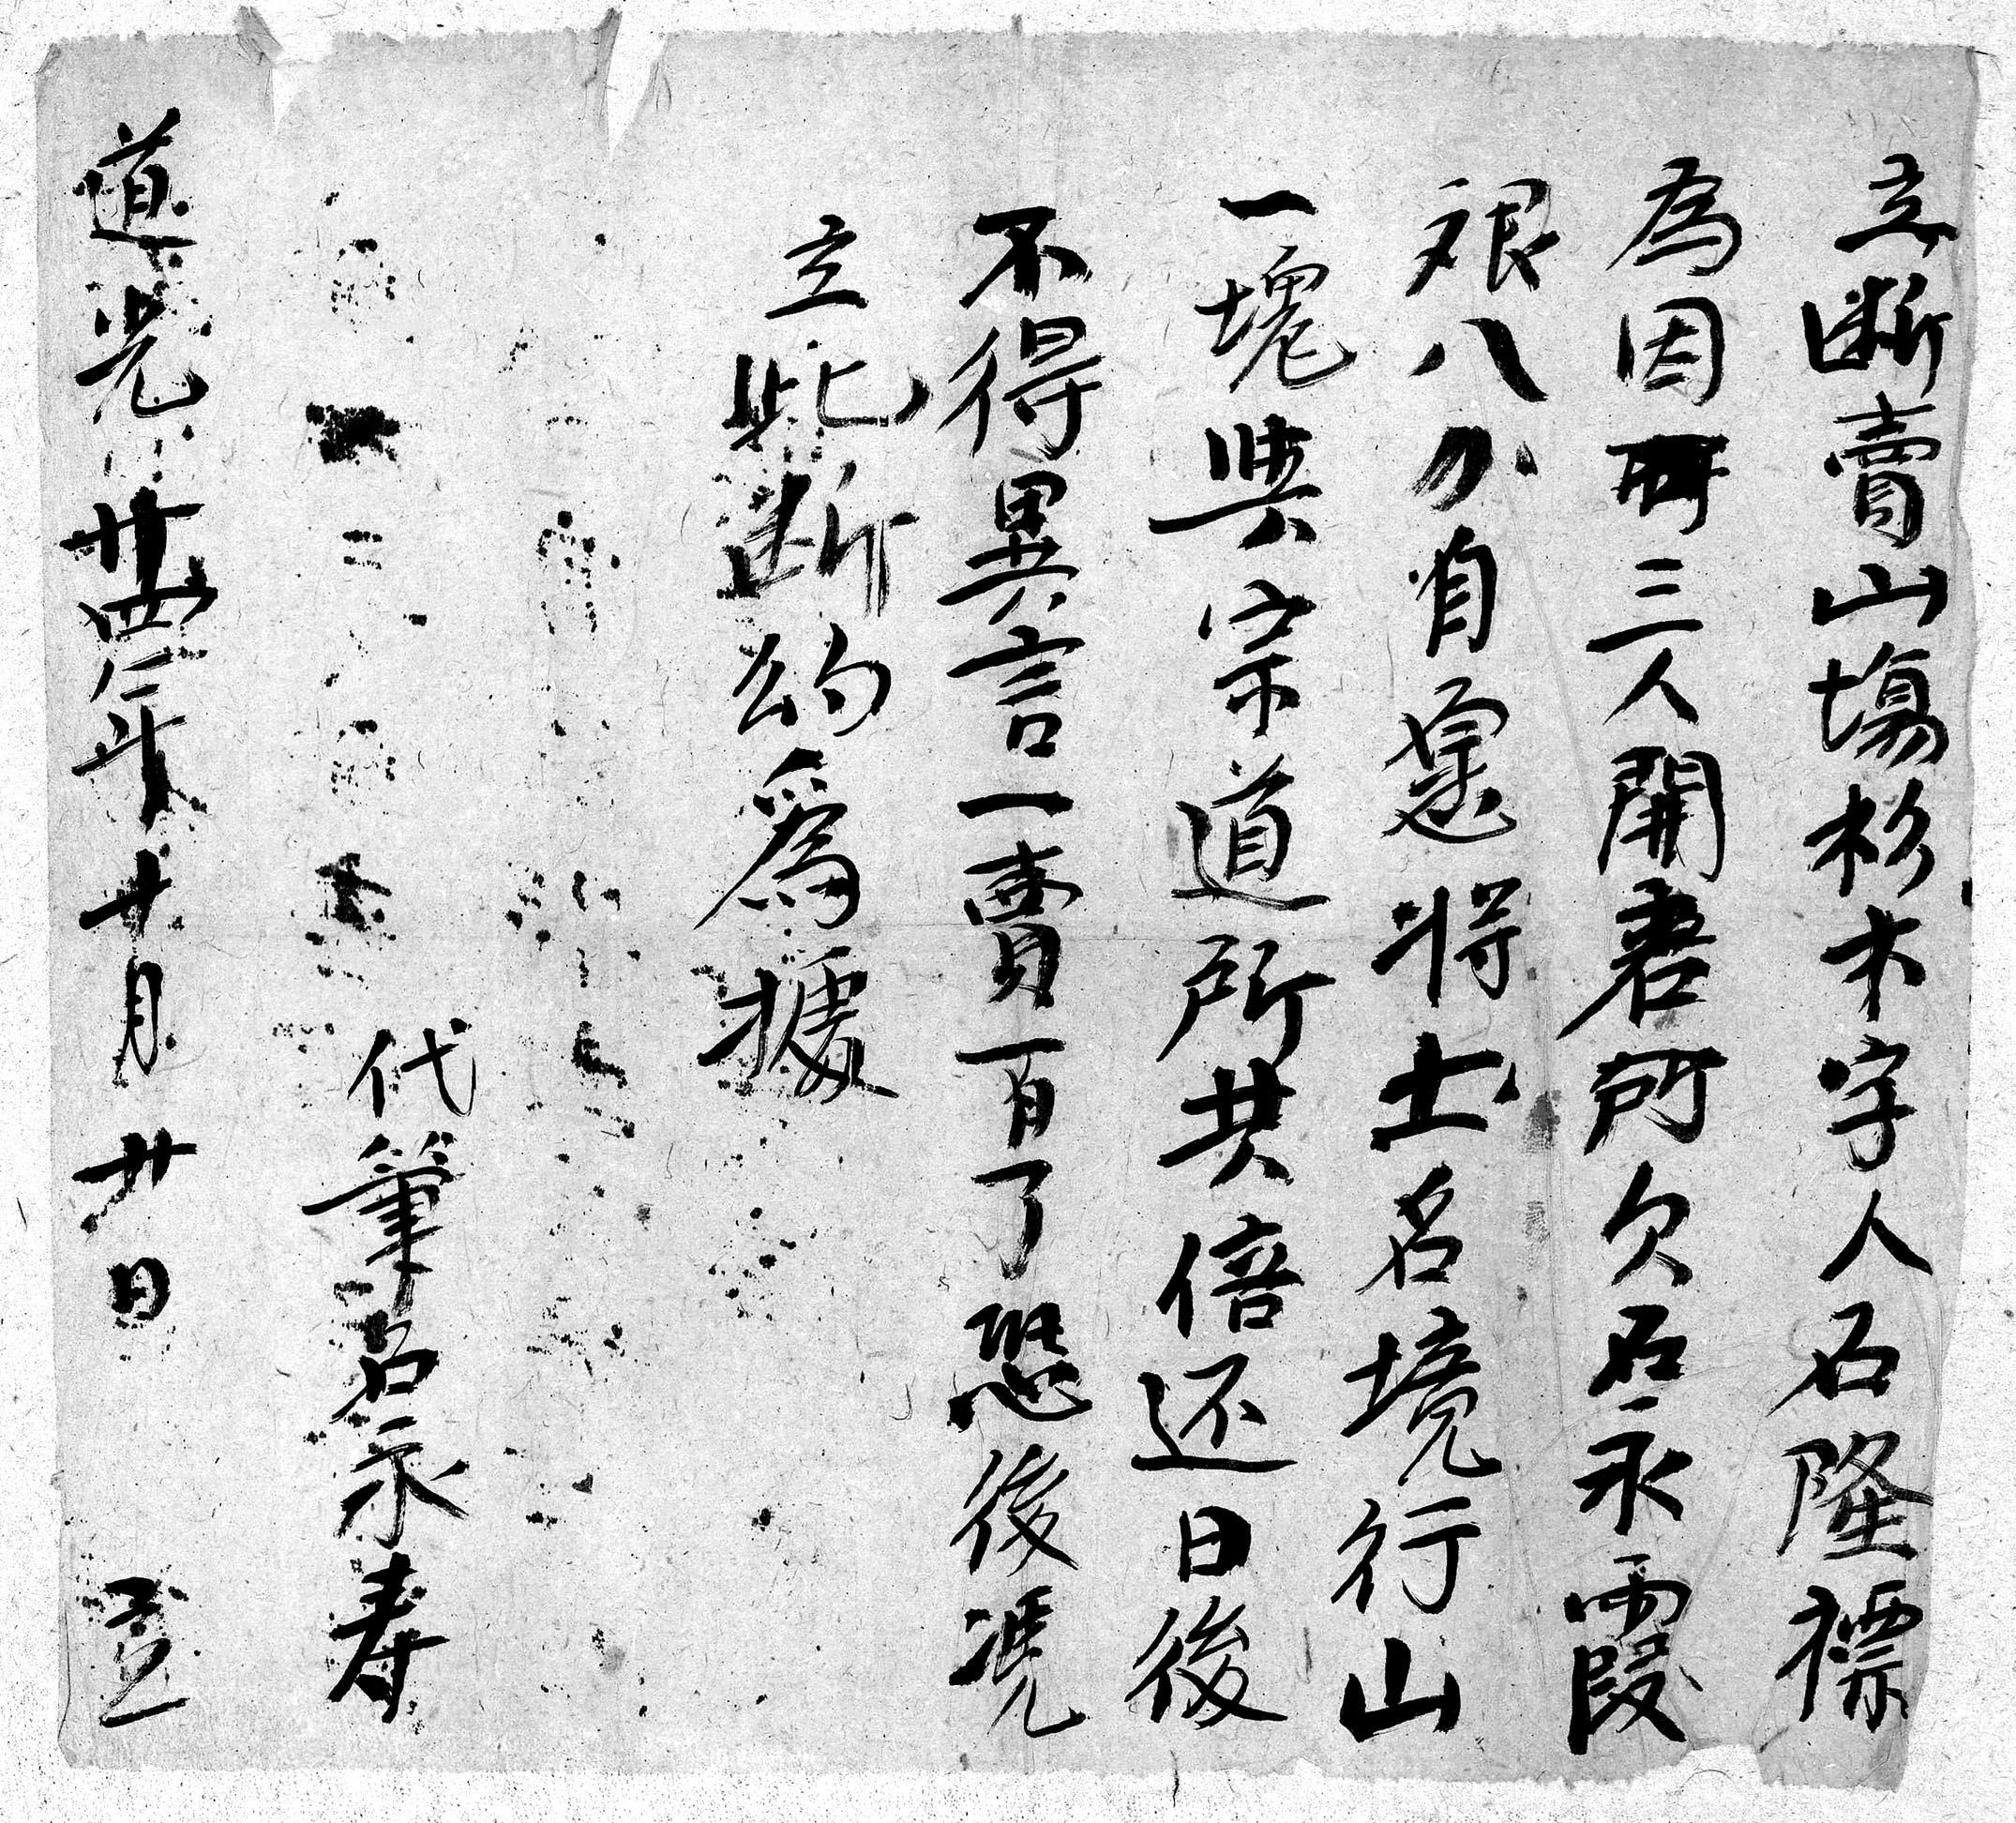 立断賣山塲杉木字人石隆標
為因 三人開 所欠石永霞
艮八分自愿將土名境行山
一塊與宗道所共倍还日後
不得異言一賣百了恐後凴
立此断約爲據
代筆石永寿
道光廿四年十月廿日 立